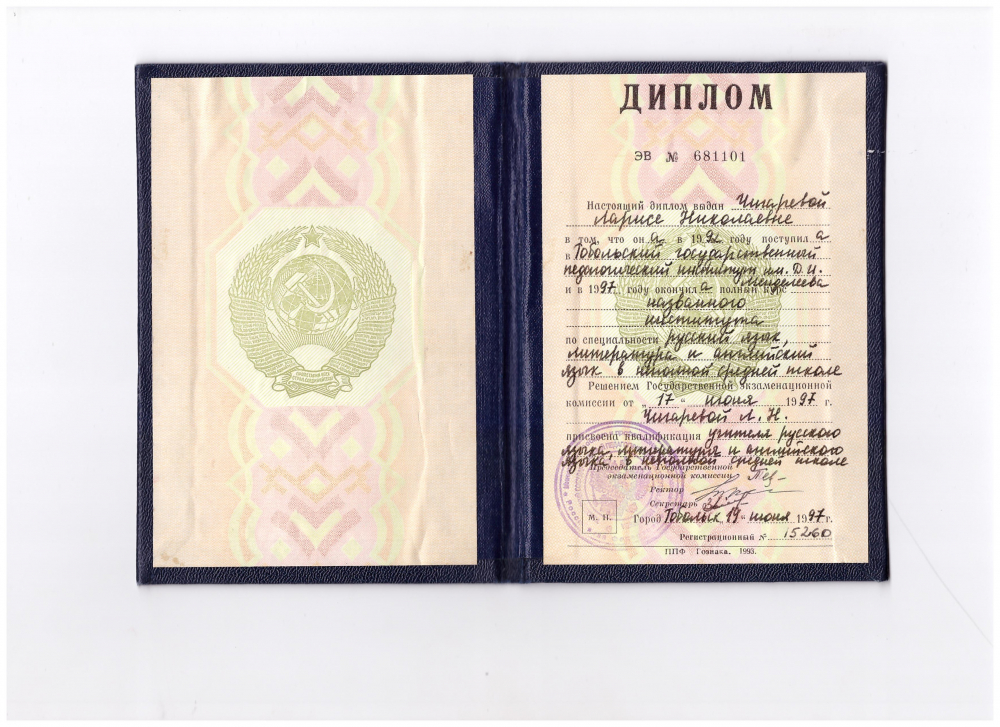 ДИПЛОМ
ЭВ № 681101
Настоящий диплом выдан Чигаревой
Ларисе Николаевне
в том, что она в 1992 году поступила
в Тобольский государственный
педагогический институт им. Д.И.
Менделеева
и в 1997 году окончила полный курс
названного
института
по специальности русский язык,
литература и английский
язык в неполной средней школе
Решением Государственной экзаменационной
комиссии от „17“ июня 1997 г.
Чигаревой Л. Н.
присвоена квалификация учителя русского
языка, литературы и английского
языка в неполной средней школе
Председатель Государственной
экзаменационной комиссии
Ректор
Секретарь
М. П.
Город Тобольск, 19 “ июня 1997 г.
Регистрационный № 15260
ППФ Гознака. 1993.